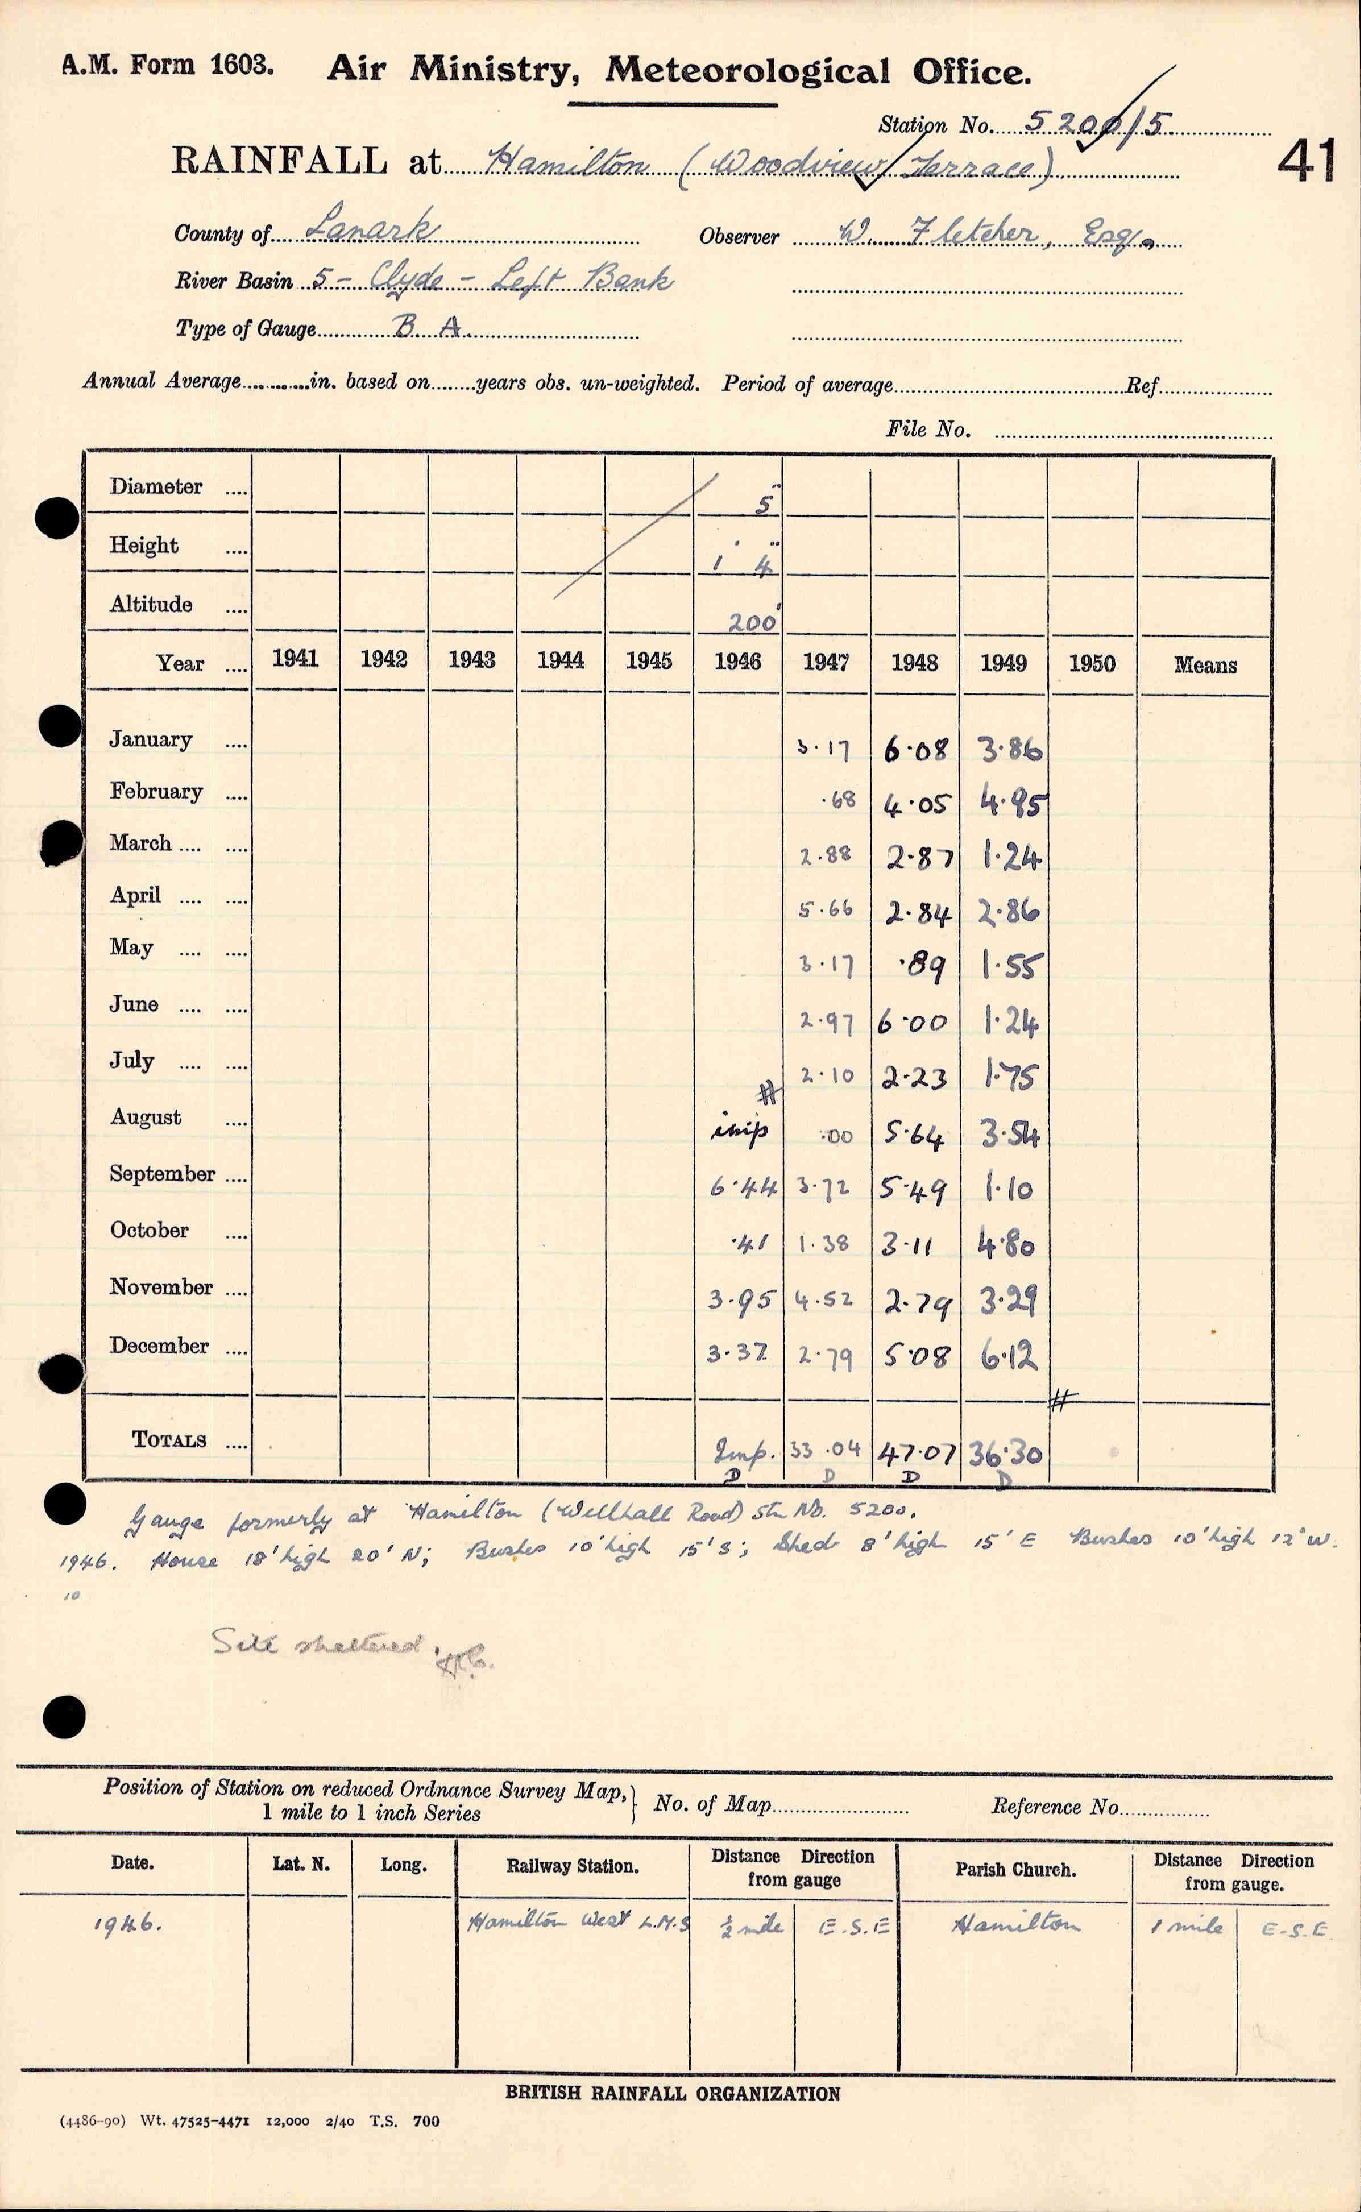 A.M. Form 1603. Air Ministry, Meteorological Office.
Station No. 5200/5
41
RAINFALL at Hamilton (Woodview Terrace)
County of Lanark Observer W. Fletcher, Esq.
River Basin 5 - Clyde - Left Bank
Type of Gauge B A.
Annual Average in. based on years obs. un-weighted. Period of average Ref.
File No.
Diameter 5"
Height 1' 4"
Altitude 200'
Year 1941 1942 1943 1944 1945 1946 1947 1948 1949 1950 Means
January 3.17 6.08 3.86
February .68 4.05 4.95
March 2.88 2.87 1.24
April 5.66 2.84 2.86
May 3.17 .89 1.55
June 2.97 6.00 1.24
July 2.10 2.23 1.75
#
August imp .00 5.64 3.54
September 6.44 3.72 5.49 1.10
October .41 1.38 3.11 4.80
November 3.95 4.52 2.79 3.29
December 3.37 2.79 5.08 6.12
#
TOTALS Imp. 33.04 47.07 36.30
D D D D
Gauge formerly at Hamilton (Wellhall Road) Stn No. 5200.
1946. House 18' high 20' N; Bushes 10' high 15' S; Shed 8' high 15' E Bushes 10' high 12' W.
10
Site sheltered.
Position of Station on reduced Ordnance Survey Map, 1 mile to 1 inch Series } No. of Map Reference No.
Date. Lat. N. Long. Railway Station. Distance Direction from gauge Parish Church. Distance Direction from gauge.
1946. Hamilton West L.M.S ½ mile E.S.E Hamilton 1 mile E.S.E
BRITISH RAINFALL ORGANIZATION
(4486-90) Wt. 47525-4471 12,000 2/40 T.S. 700